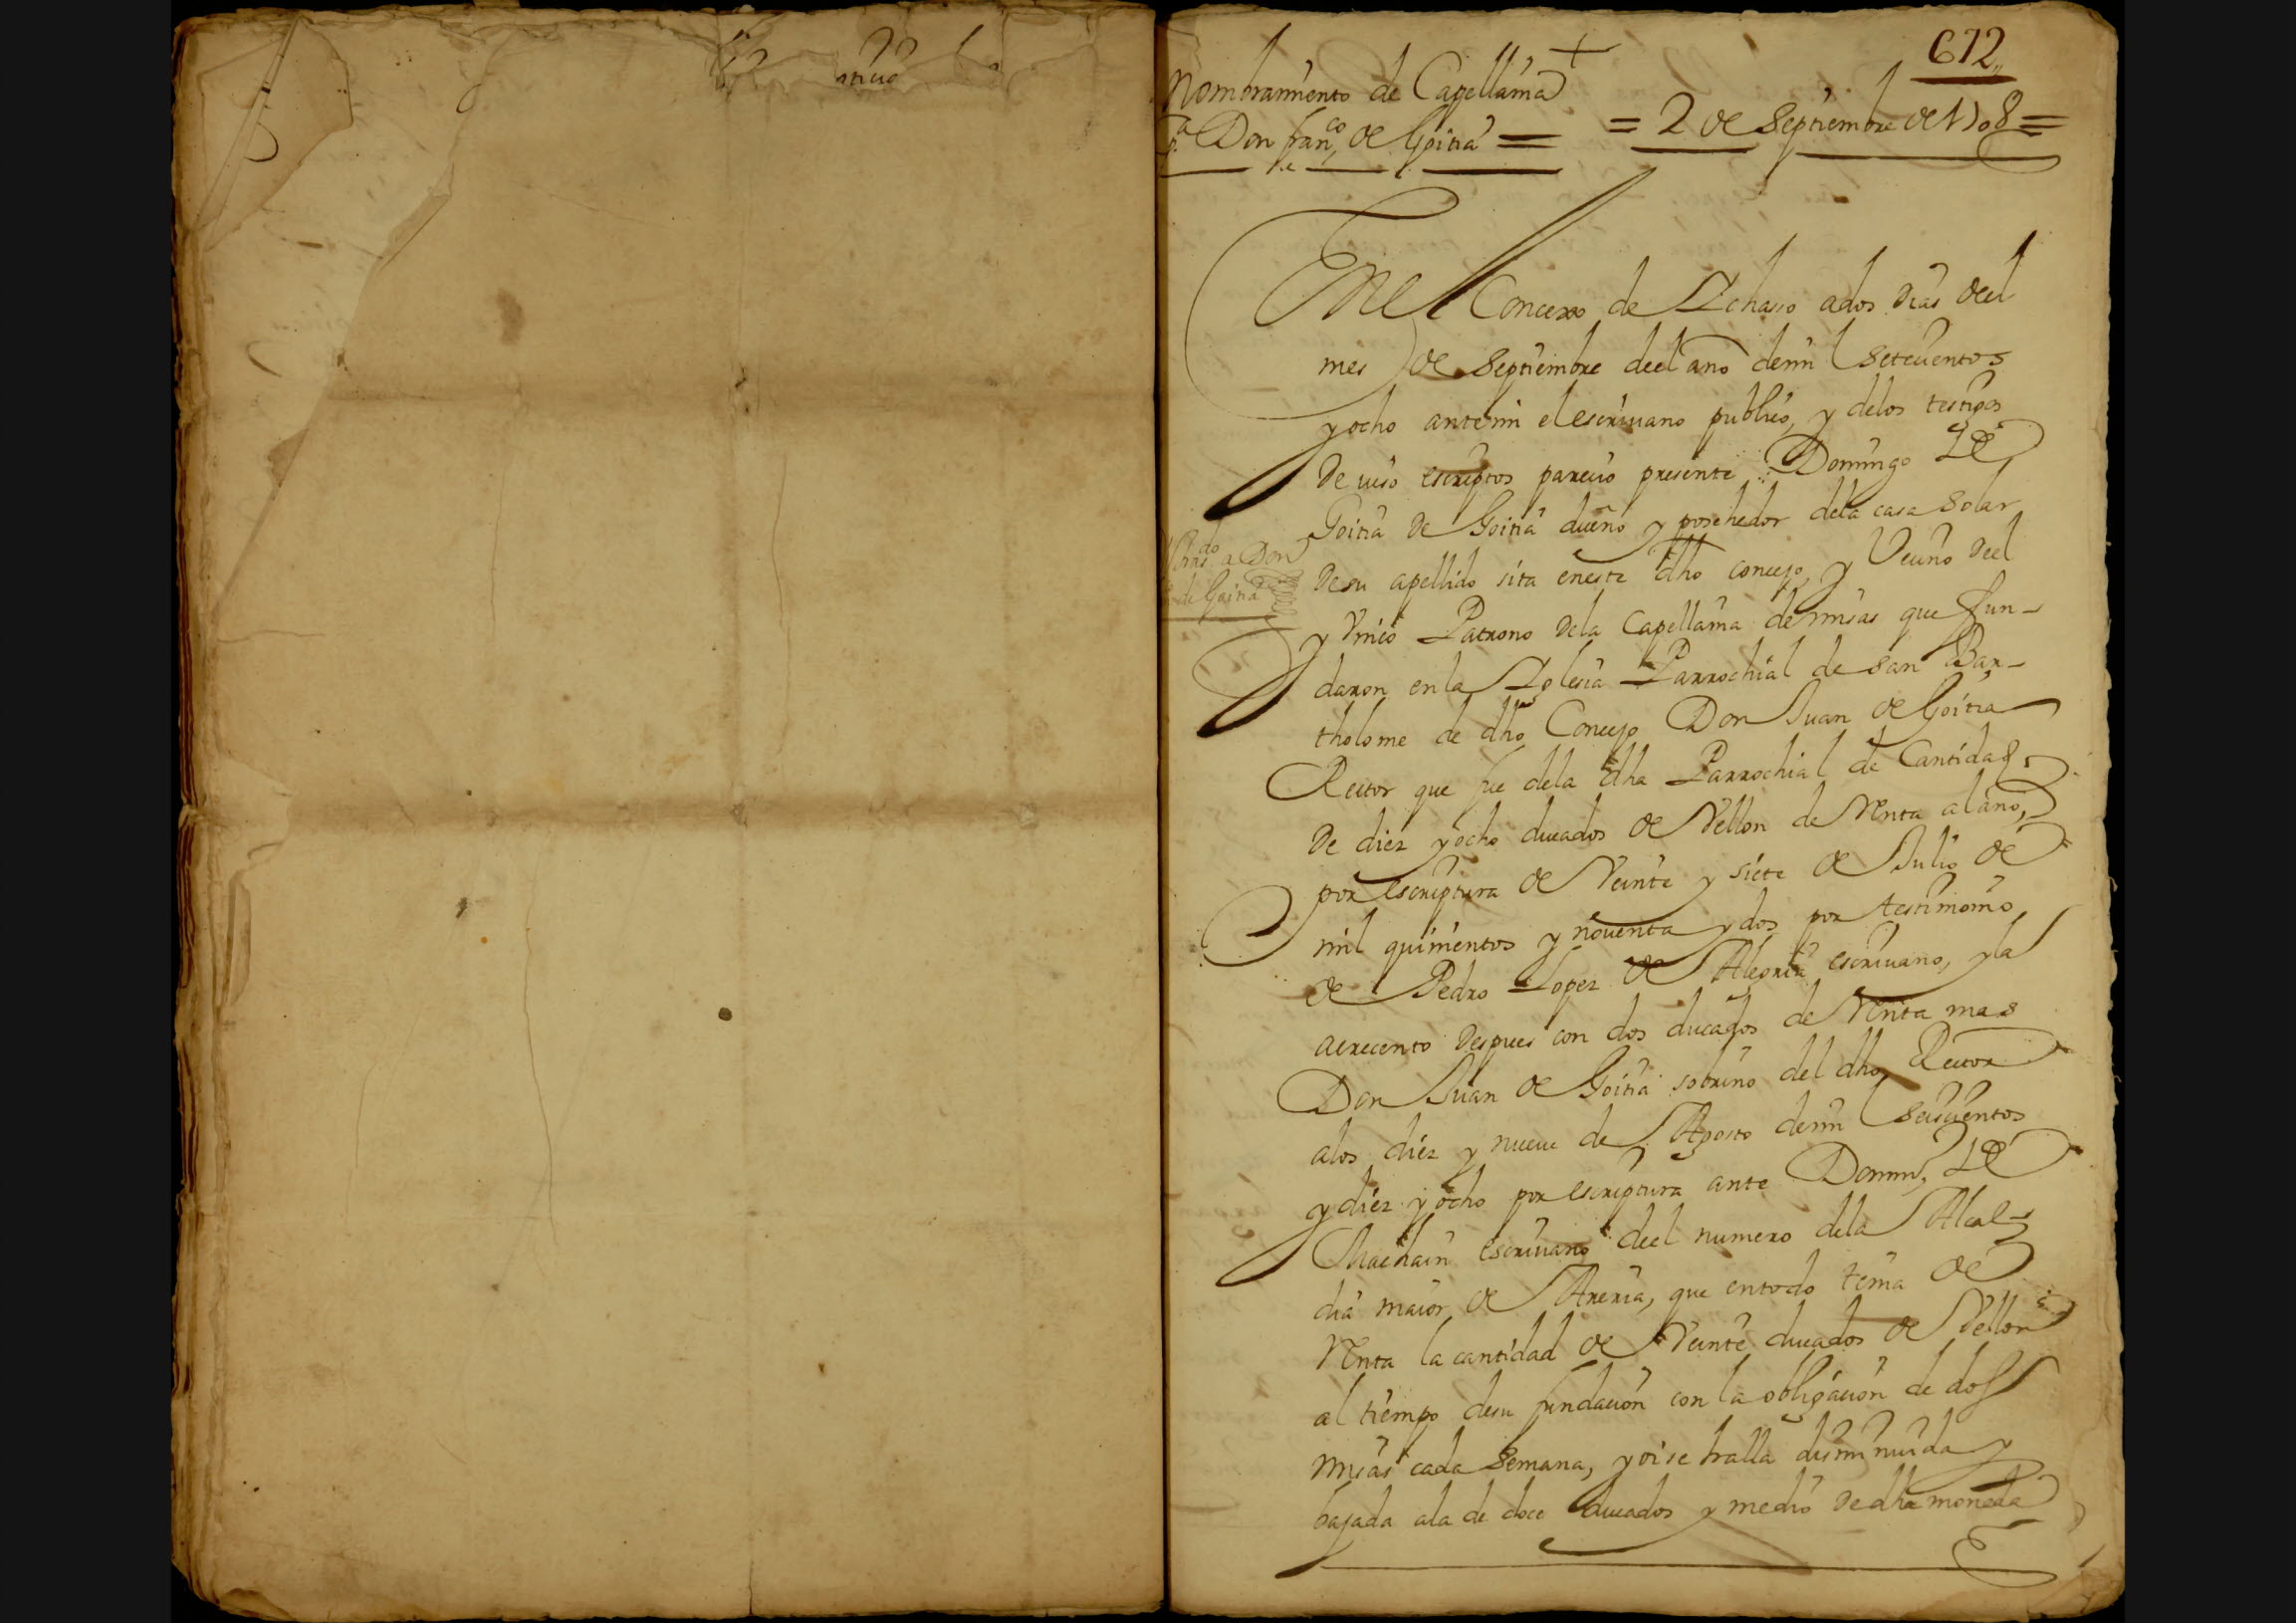 672
Nombramiento de Capellania
pa Don franco de Goitia =
= 2 de Septiembre de 1708 =
En el Concexo de Ychasso a dos dias deel
mes de Septiembre deel año de mil Setecientos
y ocho ante mi el escriuano publico, y de los testigos
de iuso escriptos parecio presente Domingo de
Goitia de Goitia dueño y posehedor dela casa Solar
de su apellido sita en este dho concejo, y Vecino deel
y Vnico Patrono dela Capellania de misas que fun-
daron en la Yglesia Parrochial de san Bar-
tholome de dho Concejo Don Juan de Goitia
Rector que fue dela dha Parrochial de Cantidad
de diez y ocho ducados de Vellon de Renta al año,
por escriptura de Veinte y siete de Julio de
mil quinientos y nouenta y dos por testimonio
de Pedro Lopez de Alegria escriuano, y la
acrecento despues con dos ducados de Renta mas
Don Juan de Goitia sobrino del dho Rector
a los diez y nueue de Agosto de mil Seiscientos
y diez y ocho por escriptura ante Domingo de
Machain escriuano deel numero dela Alcal-
dia maior de Areria, que en todo tenia de
Renta la cantidad de Veinte ducados de Vellon
al tiempo de su fundacion con la obligacion de dos
misas cada Semana, y oi se halla disminuida y
bajada a la de doce ducados y medio de dha moneda
a Don
de Goitia